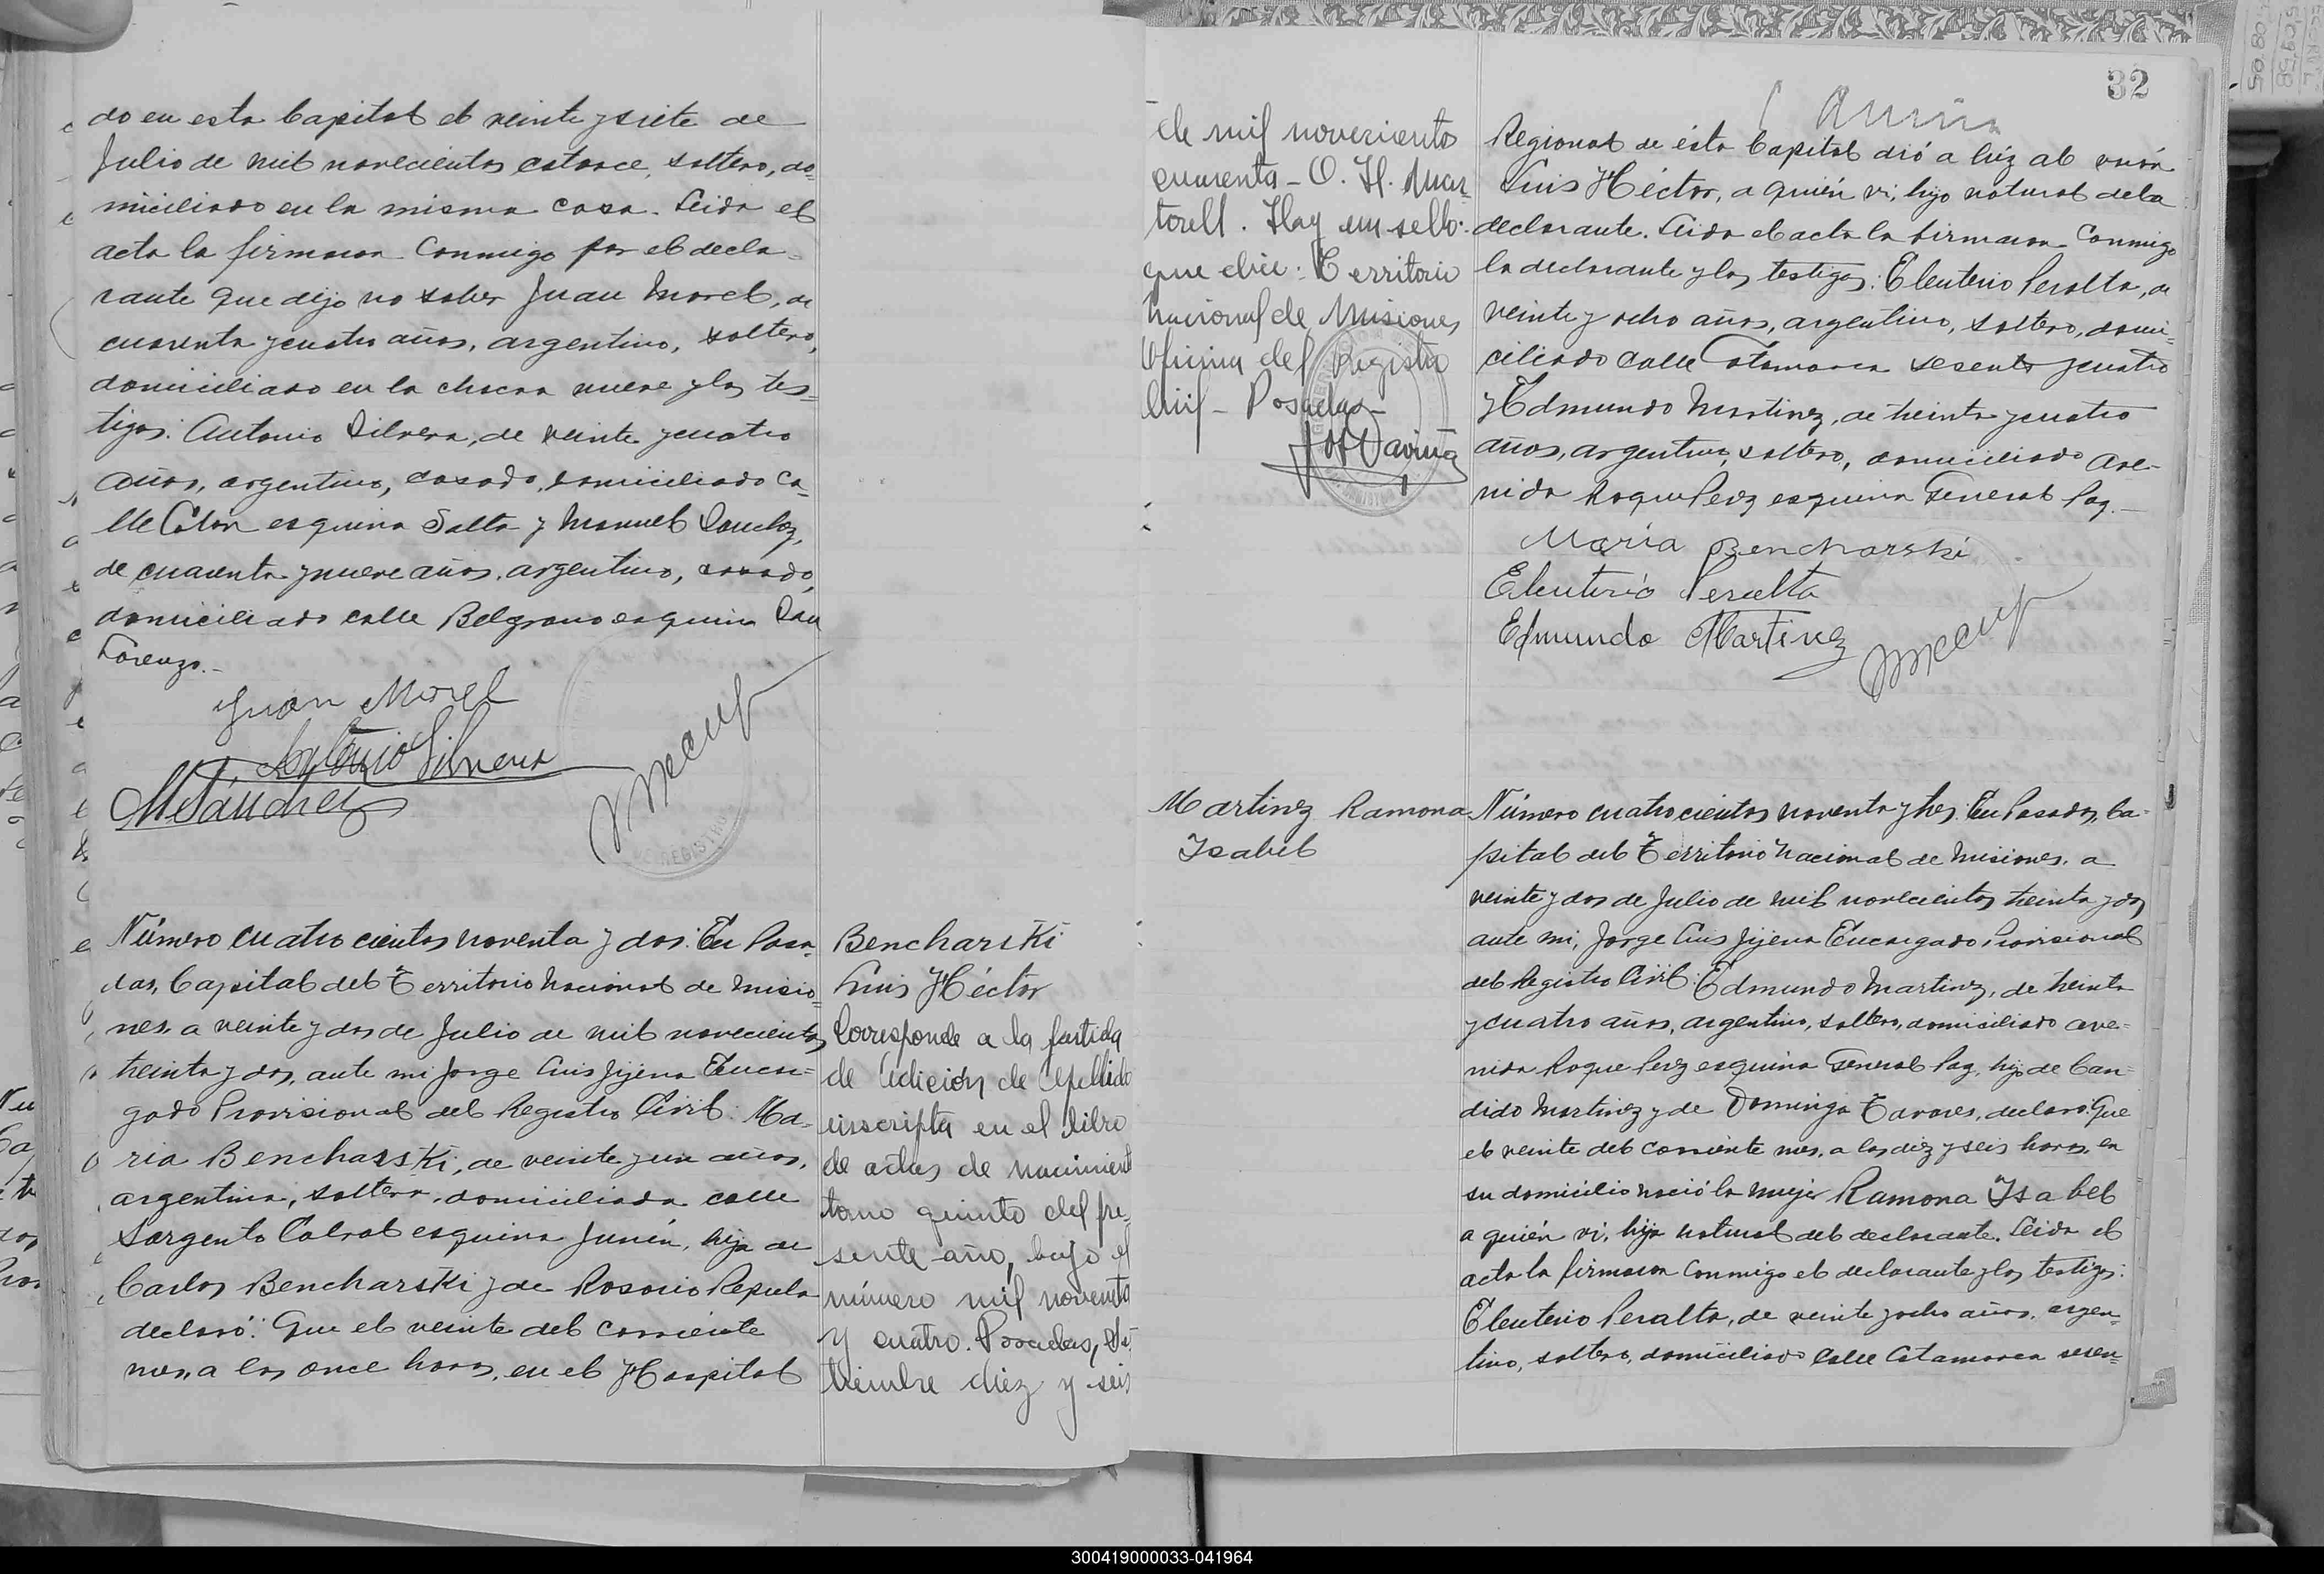 do en esta Capital el veinte y siete de
Julio de mil novecientos catorce, soltero, do-
miciliado en la misma casa. Leida el
acta la firmaron conmigo por el decla-
rante que dijo no saber Juan Morel, de
cuarenta y cuatro años, argentino, soltero,
domiciliado en la chacra nueve y los tes-
tigos: Antonio Silvera, de veinte y cuatro
años, argentino, casado, domiciliado ca-
lle Colon esquina Salta y Manuel Sanchez,
de cuarenta y nueve años, argentino, casado,
domiciliado calle Belgrano esquina San
Lorenzo.-
Juan Morel
Antonio Silvera
M Sánchez
REGISTRO
Número cuatrocientos noventa y dos: En Posa-
das, Capital del Territorio Nacional de Misio-
nes, a veinte y dos de Julio de mil novecientos
treinta y dos, ante mi Jorge Luis Jijena Encar-
gado Provisional del Registro Civil: Ma-
ria Bencharski, de veinte y un años,
argentina, soltera, domiciliada calle
Sargento Cabral esquina Junín, hija de
Carlos Bencharski y de Rosario Repula
declaró: Que el veinte del corriente
mes, a las once horas, en el Hospital
Bencharski
Luis Héctor
Corresponde a la partida
de Adición de Apellido
inscripta en el libro
de actas de nacimient
tomo quinto del pre-
sente año, bajo el
número mil noventa
y cuatro. Posadas, Se-
tiembre diez y seis
32
de mil novecientos
cuarenta - O. H. Mar-
torell. Hay un sello:
que dice: Territorio
Nacional de Misiones
Oficina del Registro
Civil - Posadas -
Regional de ésta Capital dió a lúz al varón
Luis Héctor, a quién vi, hijo natural de la
declarante. Leida el acta la firmaron conmigo
la declarante y los testigos: Eleuterio Peralta, de
veinte y ocho años, argentino, soltero, domi-
ciliado calle Catamarca sesenta y cuatro
y Edmundo Martinez, de treinta y cuatro
años, argentino, soltero, domiciliado Ave-
nida Roque Perez esquina General Paz.-
María Bencharski
Eleuterio Peralta
Edmundo Martinez
Martinez Ramona
Isabel
Número cuatrocientos noventa y tres: En Posadas, Ca-
pital del Territorio Nacional de Misiones, a
veinte y dos de Julio de mil novecientos treinta y dos
ante mi, Jorge Luis Jijena Encargado Provisional
del Registro Civil: Edmundo Martinez, de treinta
y cuatro años, argentino, soltero, domiciliado ave-
nida Roque Perez esquina General Paz, hijo de Can-
dido Martinez y de Dominga Tavares, declaró: Que
el veinte del corriente mes, a las diez y seis horas, en
su domicilio nació la mujer Ramona Isabel
a quién vi, hija natural del declarante. Leida el
acta la firmaron conmigo el declarante y los testigos:
Eleuterio Peralta, de veinte y ocho años, argen-
tino, soltero, domiciliado calle Catamarca sesen-
300419000033-041964